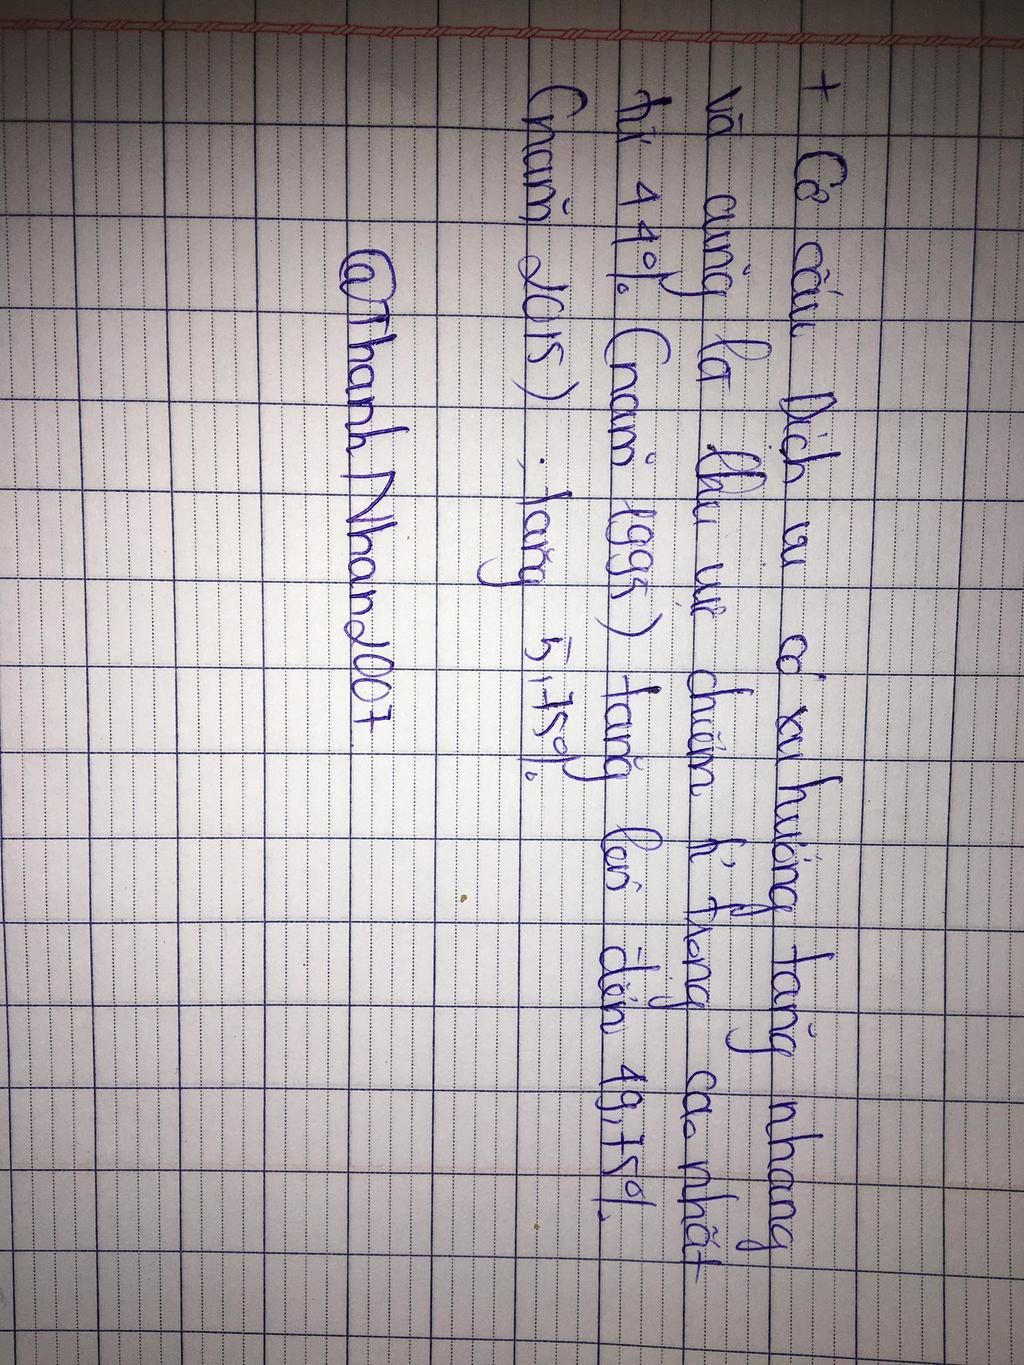 + Cơ cấu Dịch vụ có xu hướng tăng nhang
và cũng là khu vực chiếm tỉ trọng cao nhất
từ 44% (năm 1995) tăng lên đến 49,75%
(năm 2015). tăng 5,75%.
@ThanhNhan2007